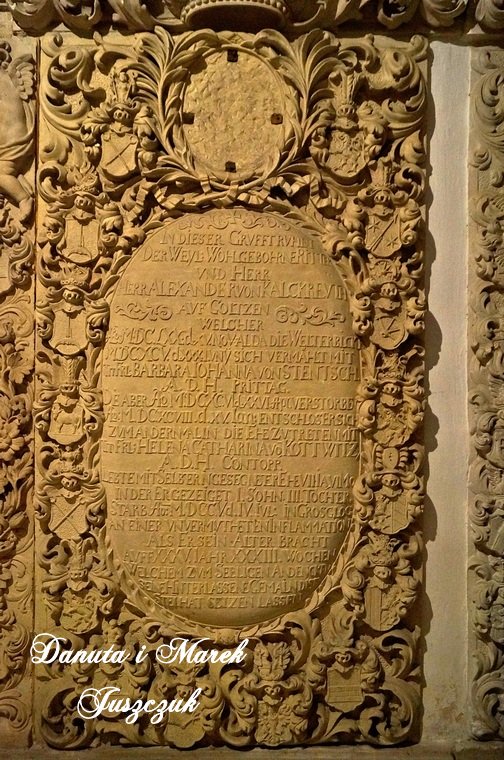 IN DIESER GRUFFT RUHET
DER WEYL: WOHLGEBOHRNE RITTER
UND HERR
HERR ALEXANDER VON KALCKREUTH
AUF GOLTZEN
WELCHER
DIE WELT
SICH VERMÄHLT MIT
BARBARA JOHANNA VON STENTSCH
A. D. H. PRITTAG
DIE ABER VERSTORBEN
MDCXCVIII d. XV ENTSCHLOS ER SICH
ZUM ANDERN MAL IN DIE EHE ZU TRETEN MIT
HELENA CATHARINA VO KOTTWITZ
A. D. H. CONTOPP
LEBTE MIT SELBER IN GESEGN
IN DER ER GEZEIGET I. SOHN III. TÖCHER
STARB Aō MDCCV d. IV IN GROS
AN EINER UNVERMUTHETEN INFLAMMATION
ALS ER SEIN ALTER BRACHT
AUF XXXVI JAHR XXXIII WOCHEN
WELCHEM ZUM SEELIGEN ANDENCKEN
HINTERLASSENE GEMAHLIN
HAT SETZEN LASSEN
Danuta i Marek
Juszczuk